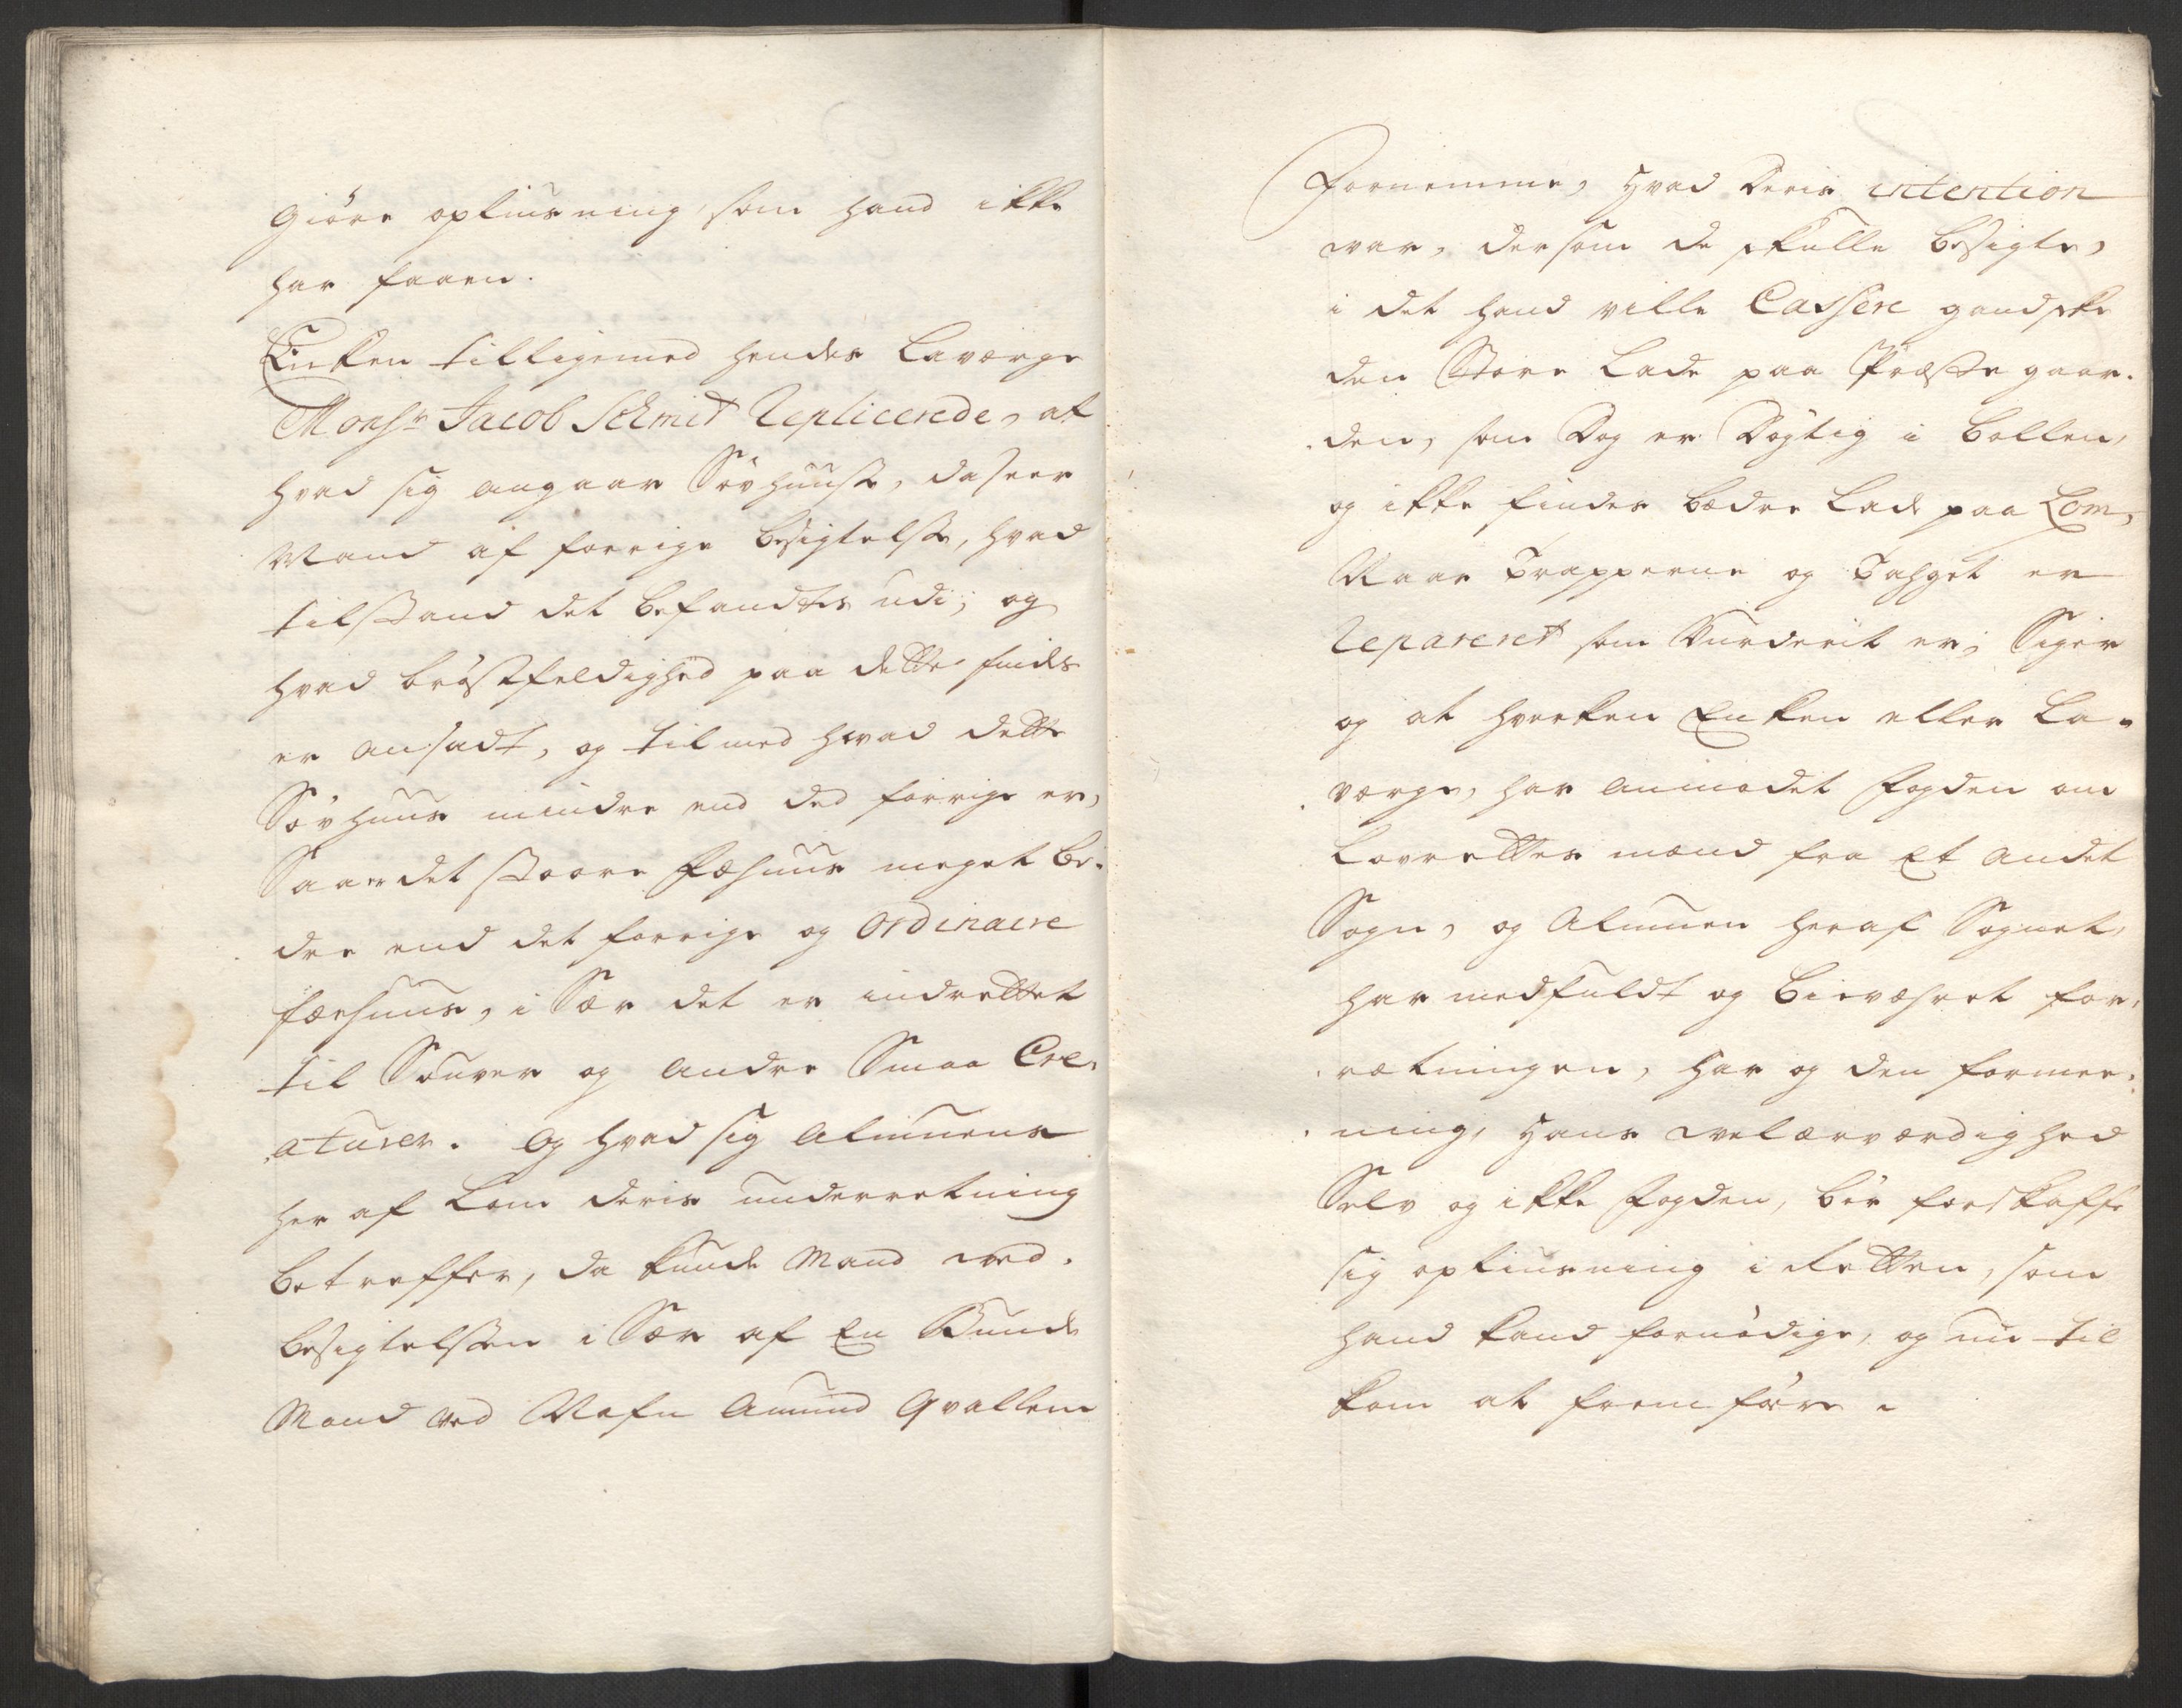 Giöre opliusning, som hand ikke
har faaen.
Enken tilligemed hendes Laværge
Monsr Jacob Schmidt Replicerede, at
hvad sig angaar Sövhuuset, da seer
Mand af forrige besigtelse, hvad
tilstand det befandtes udi; og
hvad bröstfeldighed paa dette findes
er ansadt, og tilmed hvad dette
Sövhuus mindre end ded forrige er,
Saa er det stoore Fæhuus meget be-
dre end det forrige og Ordinaire
fæehuus, i Sær det er indrettet
til Souver og andre Smaa Cre-
aturer. Og hvad sig Almuens
her af Lom deris underretning
betreffer, da kunde Mand ved
besigtelsen i Sær af En Bunde
Mand ved Nafn Amund Qvallem
Fornemme, Hvad Deris intention
var, dersom de skulle besigte,
i det hand ville Cassere gandske
den Store Lade paa Præste gaar-
den, som Dog er Dögtig i bollen,
og ikke findes bedre Lade paa Lom,
Naar Trapperne og Tahget er
Repareret som Vurderit er, Siger
og at hverken Enken eller La-
værge, har anmodet Fogden om
Lovrettes mænd fra Et andet
Sogn, og Almuen heraf Sognet,
har medfuldt og bievæhret for-
rætningen, har og den formee-
ning, Hans Velærværdighed
Selv og ikke Fogden, bör forskaffe
sig opliusning i Retten, som
hand kand fornödige, og nu til
kom at fremföre.